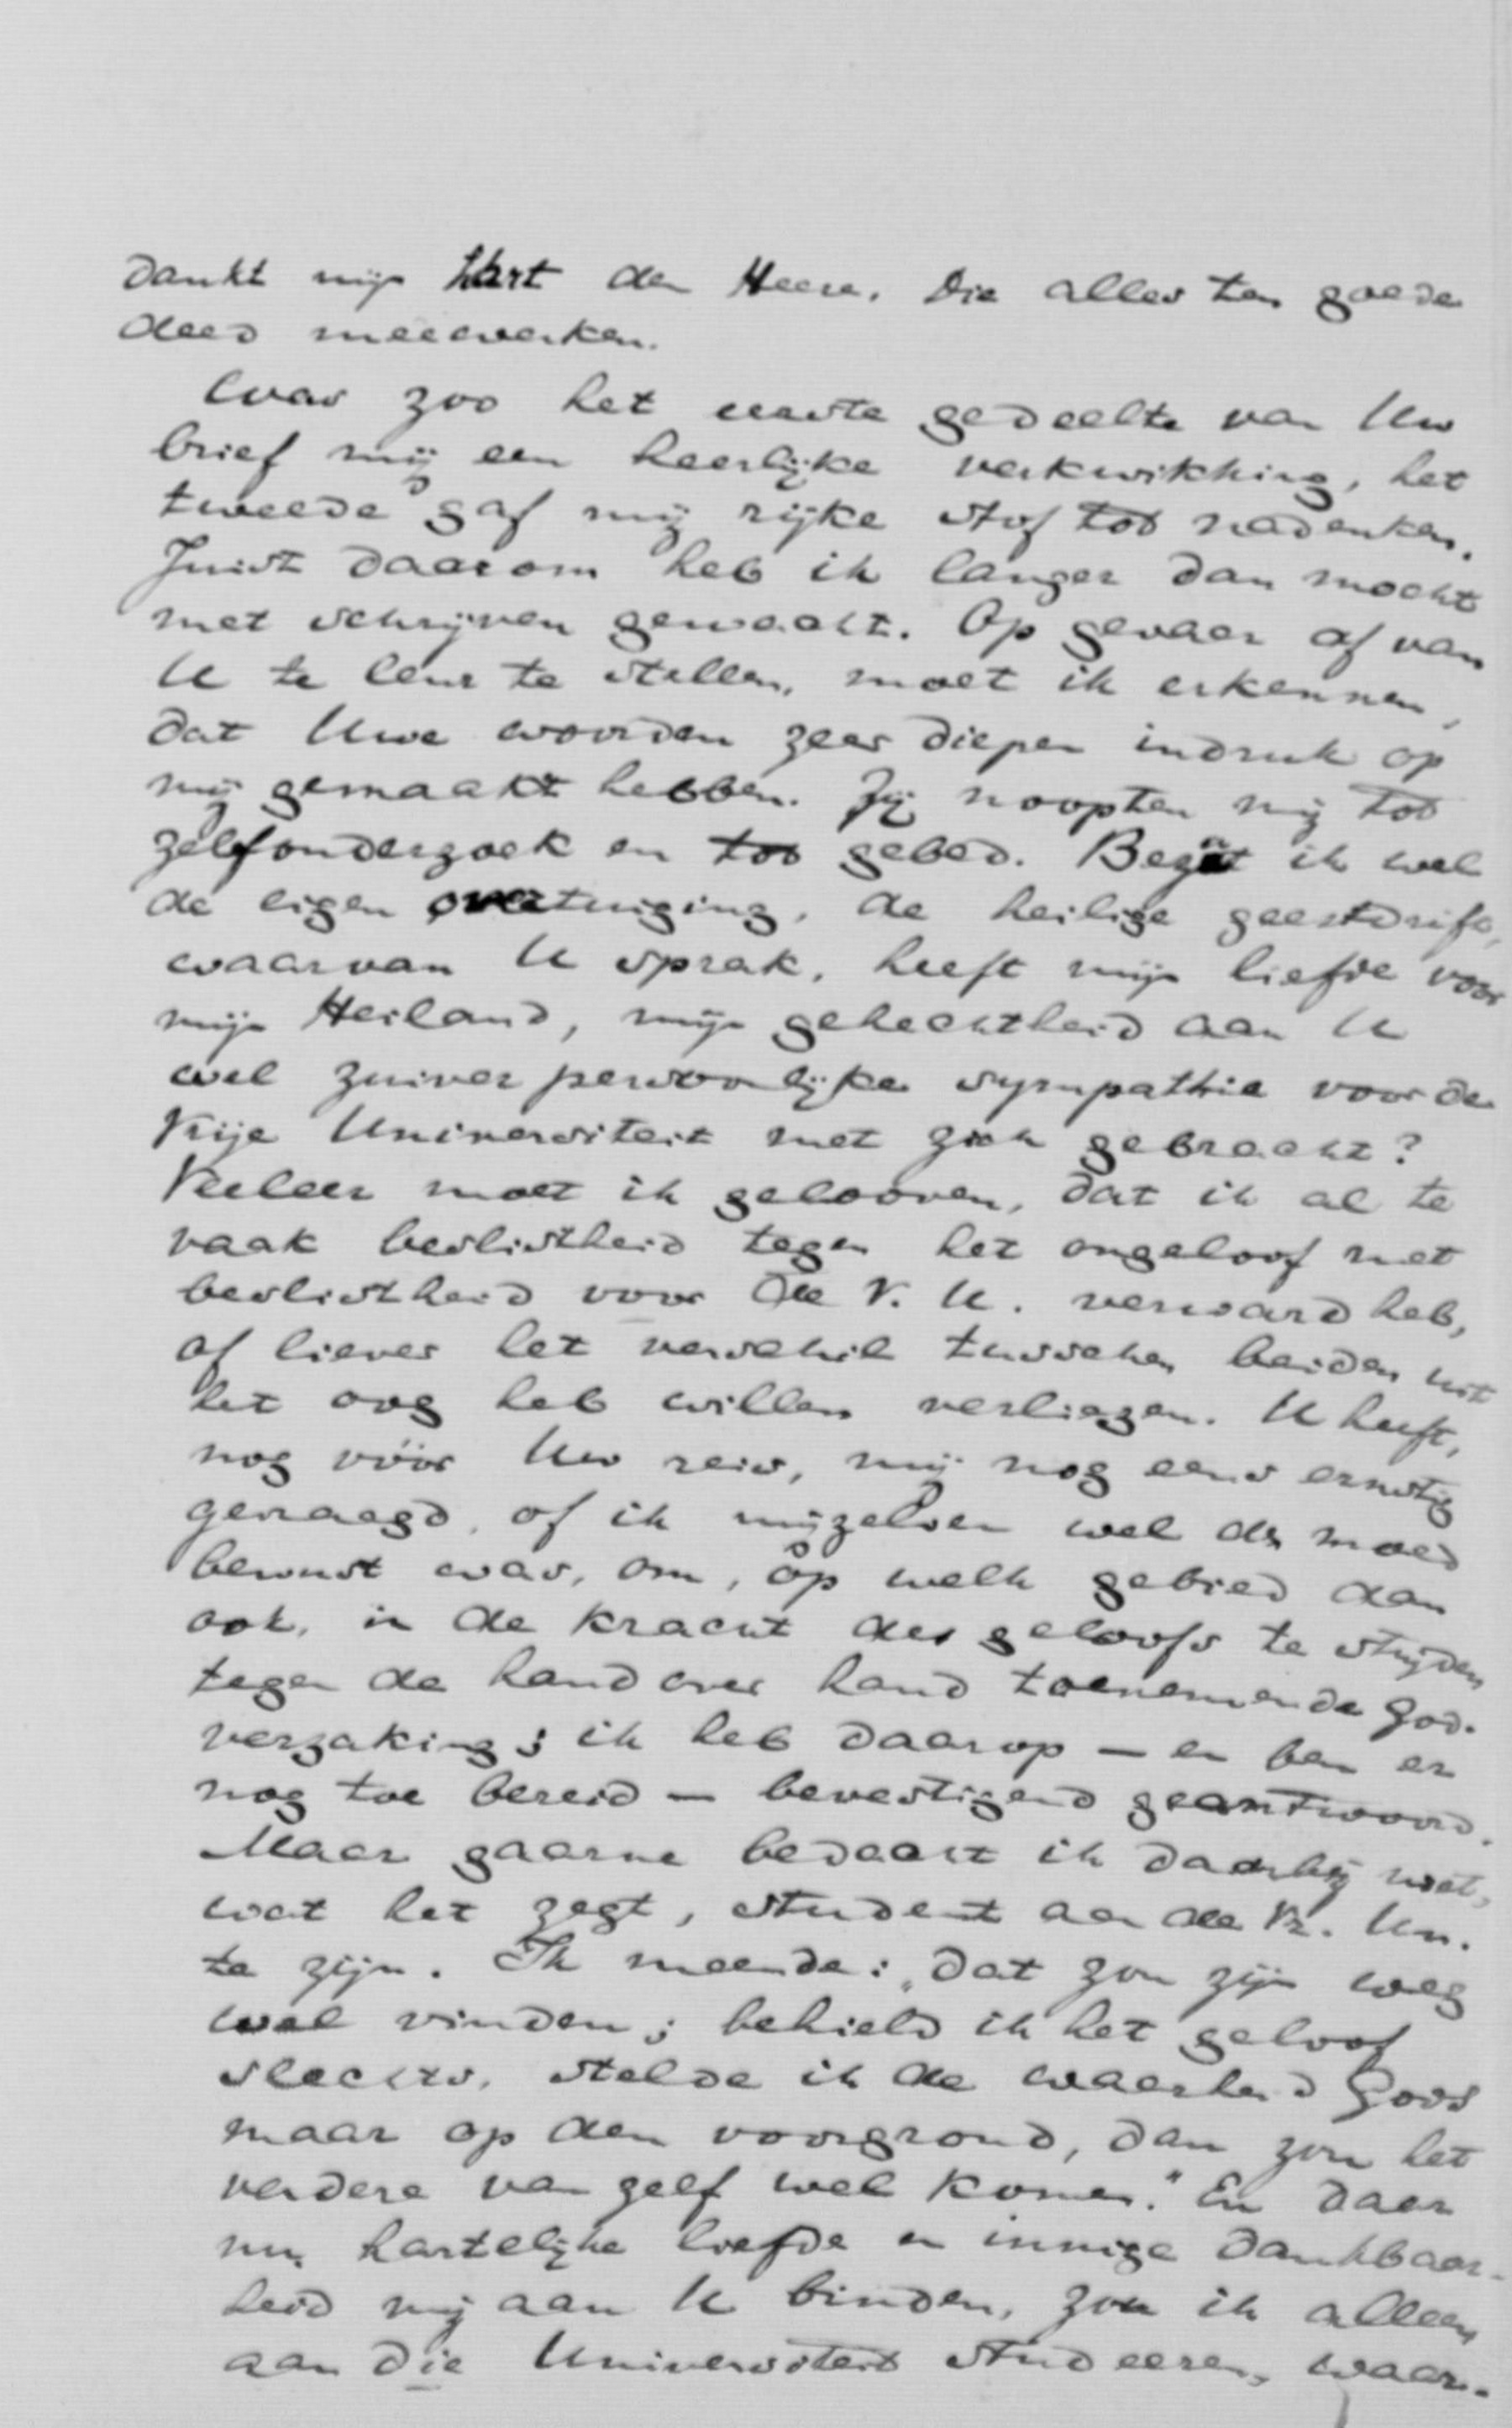 dankt mijn hart den Heere, Die alles ten goede
deed meewerken.
Was zoo het eerste gedeelte van Uw
brief mij een heerlijke verkwikking, het
tweede gaf mij rijke stof tot nadenken.
Juist daarom heb ik langer dan mocht
met schrijven gewacht. Op gevaar af van
U te leur te stellen, moet ik erkennen,
dat Uwe woorden zeer diepen indruk op
mij gemaakt hebben. Zij noopten mij tot
zelfonderzoek en tot gebed. Bezat ik wel
de eigen overtuiging, de heilige geestdrift,
waarvan U sprak, heeft mijn liefde voor
mijn Heiland, mijn gehechtheid aan U
wel zuiver persoonlijke sympathie voor de
Vrije Universiteit met zich gebracht?
Veeleer moet ik gelooven, dat ik al te
vaak beslistheid tegen het ongeloof met
beslistheid voor de V. U. verward heb,
of liever het verschil tusschen beiden uit
het oog heb willen verliezen. U heeft,
nog vóór Uw reis, mij nog eens ernstig
gevraagd, of ik mijzelven wel den moed
bewust was, om, op welk gebied dan
ook, in de kracht des geloofs te strijden
tegen de hand over hand toenemende God-
verzaking; ik heb daarop — en ben er
nog toe bereid — bevestigend geantwoord.
Maar gaarne bedacht ik daarbij niet,
wat het zegt, student aan de Vr. Un.
te zijn. Ik meende: „dat zou zijn weg
wel vinden; behield ik het geloof
slechts, stelde ik de waarheid Gods
maar op den voorgrond, dan zou het
verdere van zelf wel komen." En daar
nu hartelijke liefde en innige dankbaar-
heid mij aan U binden, zou ik alleen
aan die Universiteit studeeren, waar-